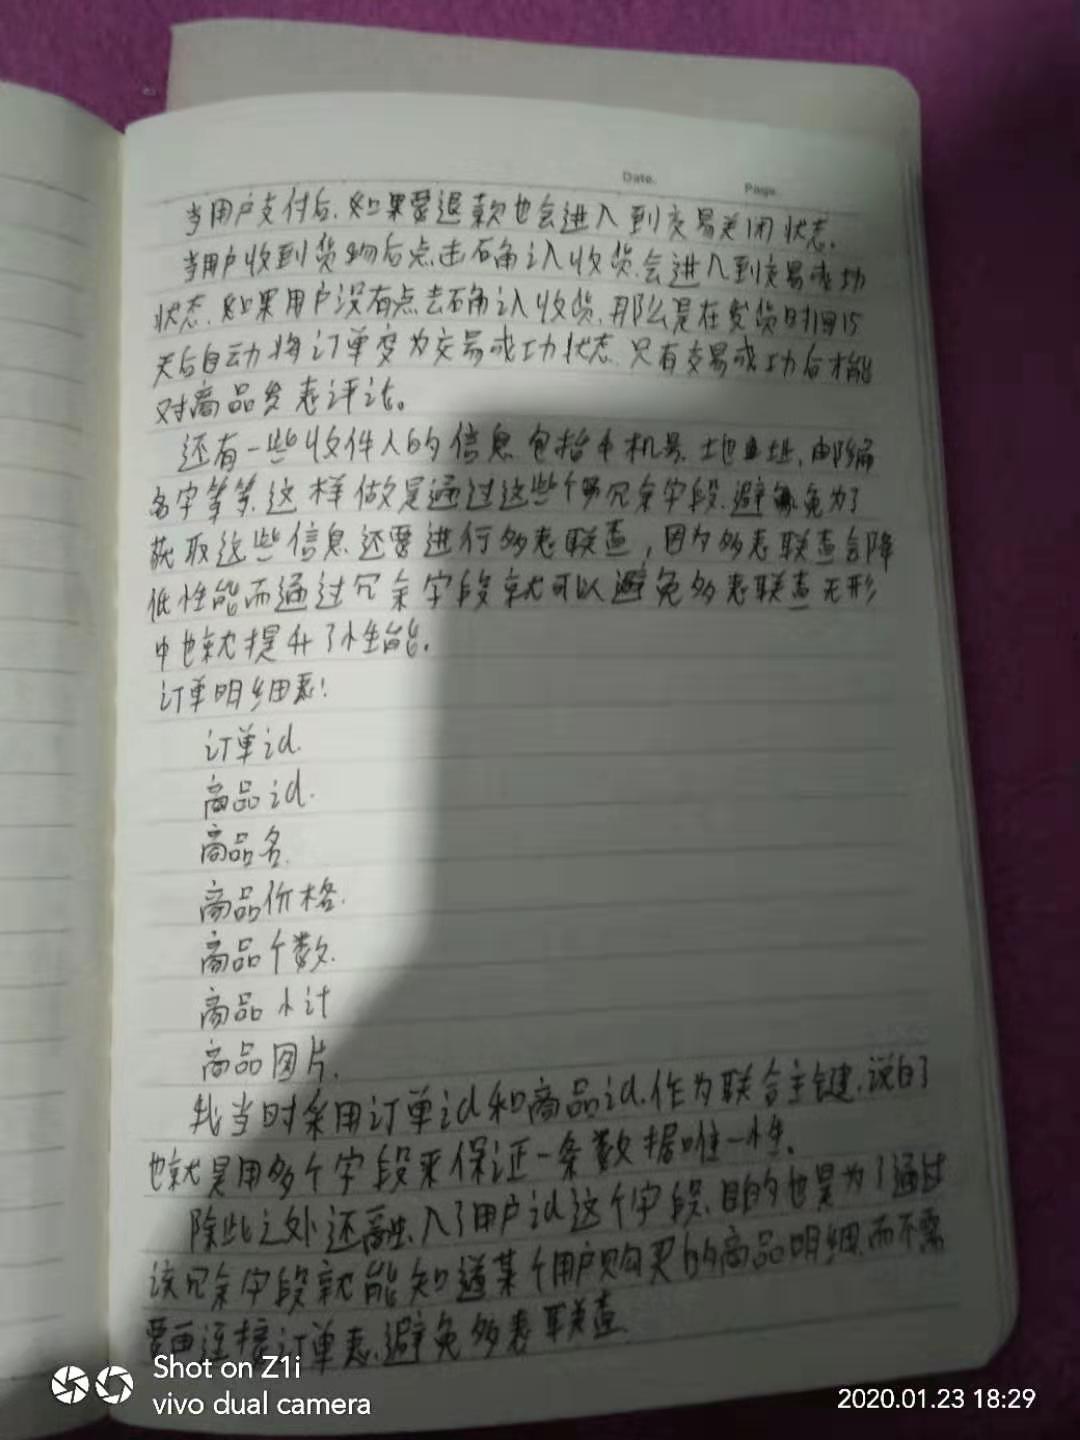 Date.
Page.
当用户支付后.如果要退款也会进入到交易关闭状态.
当用户收到货物后点击确认收货.会进入到交易成功
状态.如果用户没有点击确认收货.那么是在发货时间15
天后自动将订单变为交易成功状态.只有交易成功后才能
对商品发表评论。
还有一些收件人的信息.包括手机号.地址.邮编
名字等等.这样做是通过这些个冗余字段.避免为了
获取这些信息.还要进行多表联查,因为多表联查会降
低性能而通过冗余字段就可以避免多表联查无形
中也就提升了性能.
订单明细表:
订单id.
商品id.
商品名.
商品价格.
商品个数.
商品小计
商品图片.
我当时采用订单id和商品id.作为联合主键.说白了
也就是用多个字段来保证一条数据唯一性.
除此之外还融入了用户id这个字段.目的也是为了通过
该冗余字段就能知道某个用户购买的商品明细.而不需
要再连接订单表.避免多表联查.
Shot on Z1i
vivo dual camera
2020.01.23 18:29